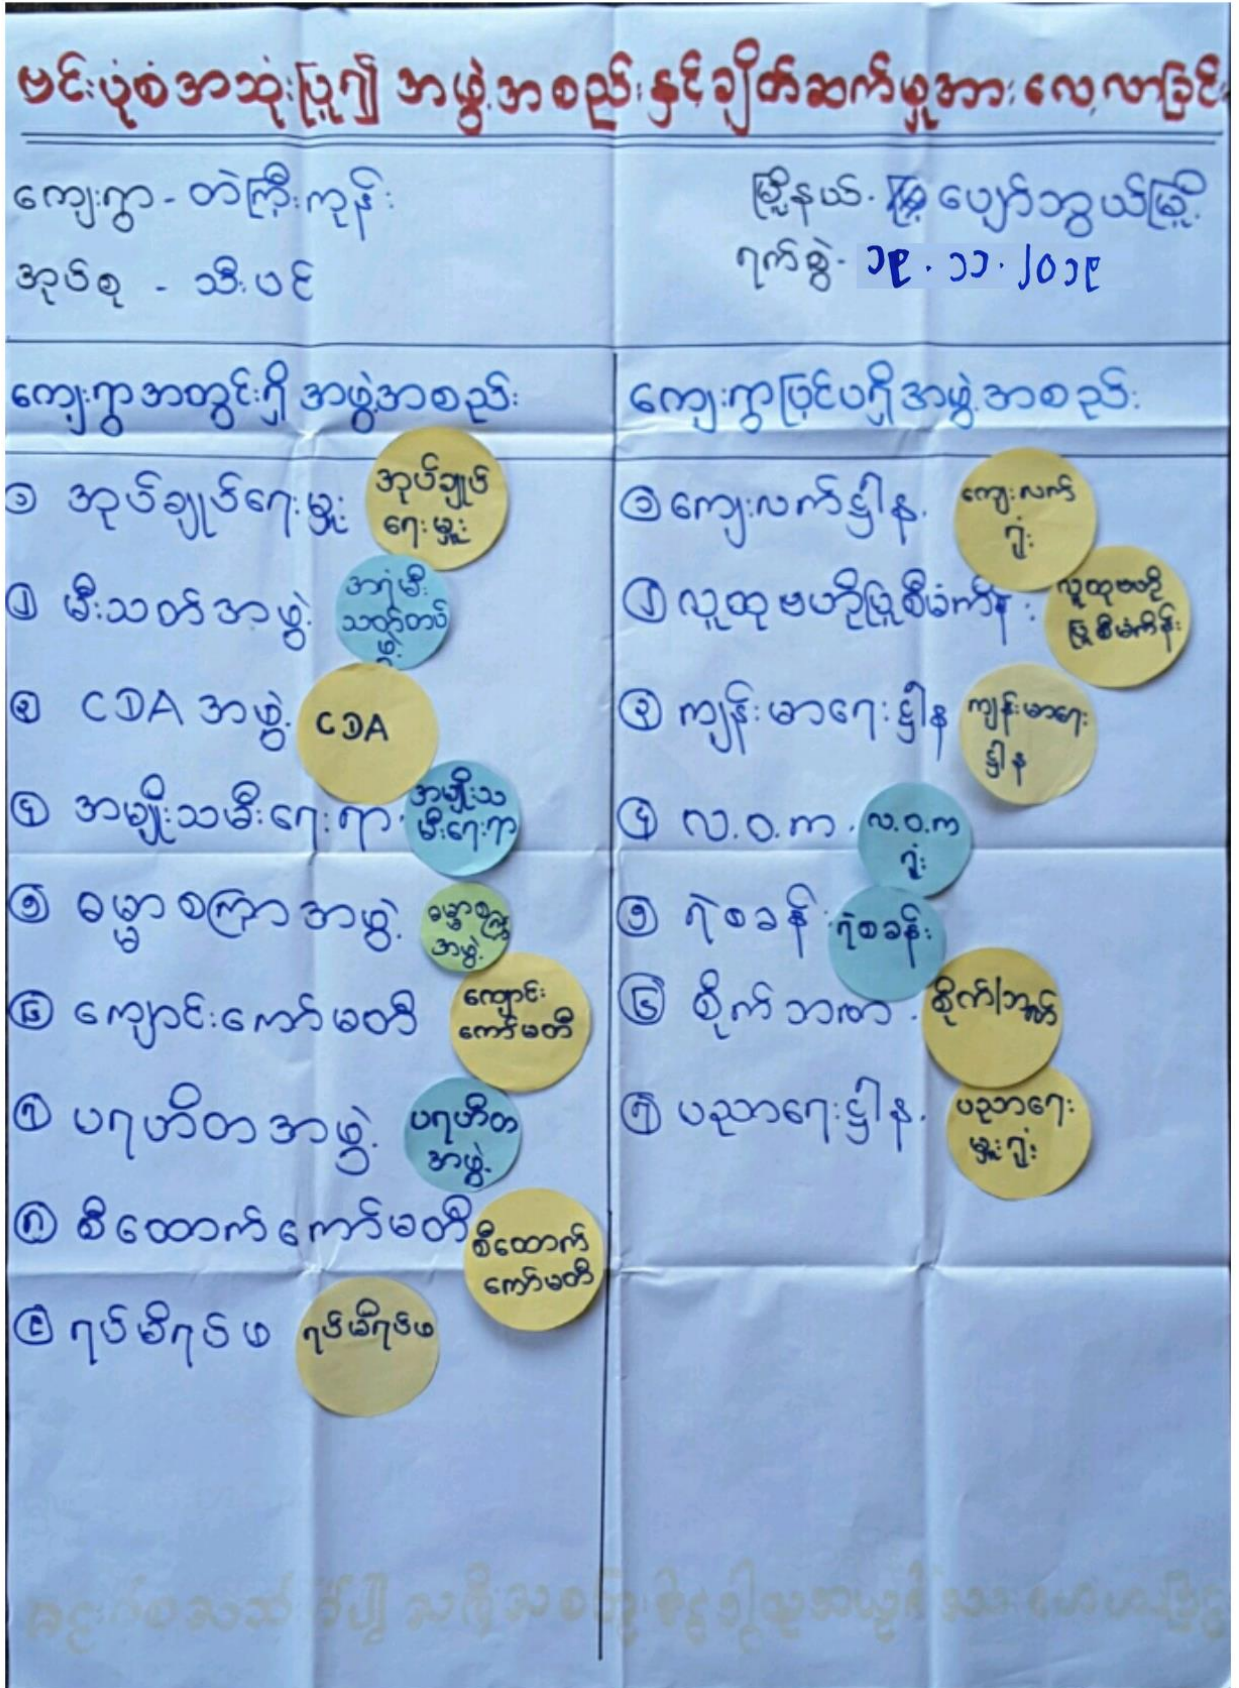 ဗင်းပုံစံအသုံးပြု၍ အဖွဲ့အစည်းနှင့်ချိတ်ဆက်မှုအားလေ့လာခြင်း
ကျေးရွာ - တဲကြီးကုန်း
မြို့နယ် - ပျော်ဘွယ်မြို့
အုပ်စု - သီးပင်
ရက်စွဲ - ၁၉.၁၁.၂၀၁၉
ကျေးရွာအတွင်းရှိ အဖွဲ့အစည်း
ကျေးရွာပြင်ပရှိအဖွဲ့အစည်း
၁ အုပ်ချုပ်ရေးမှူး
အုပ်ချုပ်
ရေးမှူး
၂ မီးသတ်အဖွဲ့
အရံမီး
သတ်တပ်
ဖွဲ့
၃ CDA အဖွဲ့
CDA
၄ အမျိုးသမီးရေးရာ
အမျိုးသ
မီးရေးရာ
၅ ဓမ္မာစကြာအဖွဲ့
ဓမ္မာစကြာ
အဖွဲ့
၆ ကျောင်းကော်မတီ
ကျောင်း
ကော်မတီ
၇ ပရဟိတအဖွဲ့
ပရဟိတ
အဖွဲ့
၈ စီထောက်ကော်မတီ
စီထောက်
ကော်မတီ
၉ ရပ်မိရပ်ဖ
ရပ်မိရပ်ဖ
၁ ကျေးလက်ဌါန
ကျေးလက်
ရုံး
၂ လူထုဗဟိုပြုစီမံကိန်း
လူထုဗဟို
ပြုစီမံကိန်း
၃ ကျန်းမာရေးဌါန
ကျန်းမာရေး
ဌါန
၄ လ.ဝ.က
လ.ဝ.က
ရုံး
၅ ရဲစခန်း
ရဲစခန်း
၆ စိုက်ဘဏ်
စိုက်/ဘဏ်
၇ ပညာရေးဌါန
ပညာရေး
မှူးရုံး